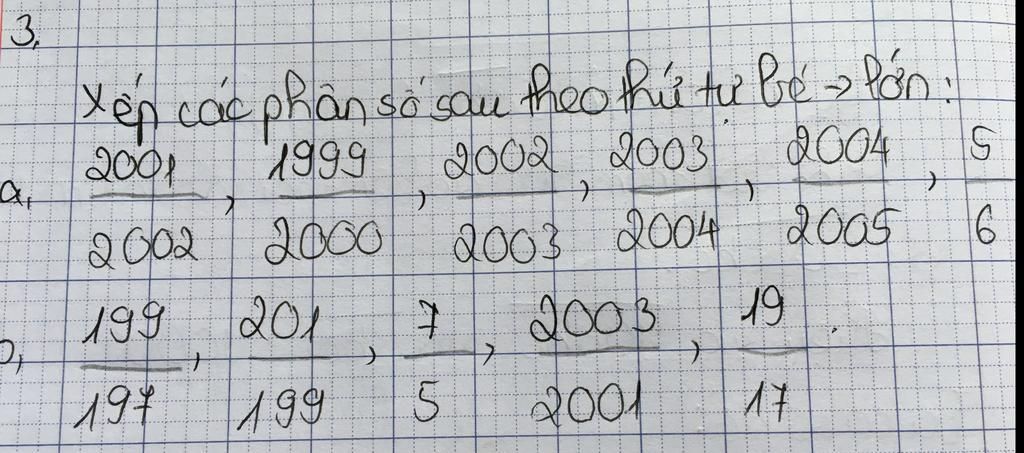 3,
Xếp các phân số sau theo thứ tự bé → lớn:
a, 2001/2002, 1999/2000, 2002/2003, 2003/2004, 2004/2005, 5/6
b, 199/197, 201/199, 7/5, 2003/2001, 19/17.